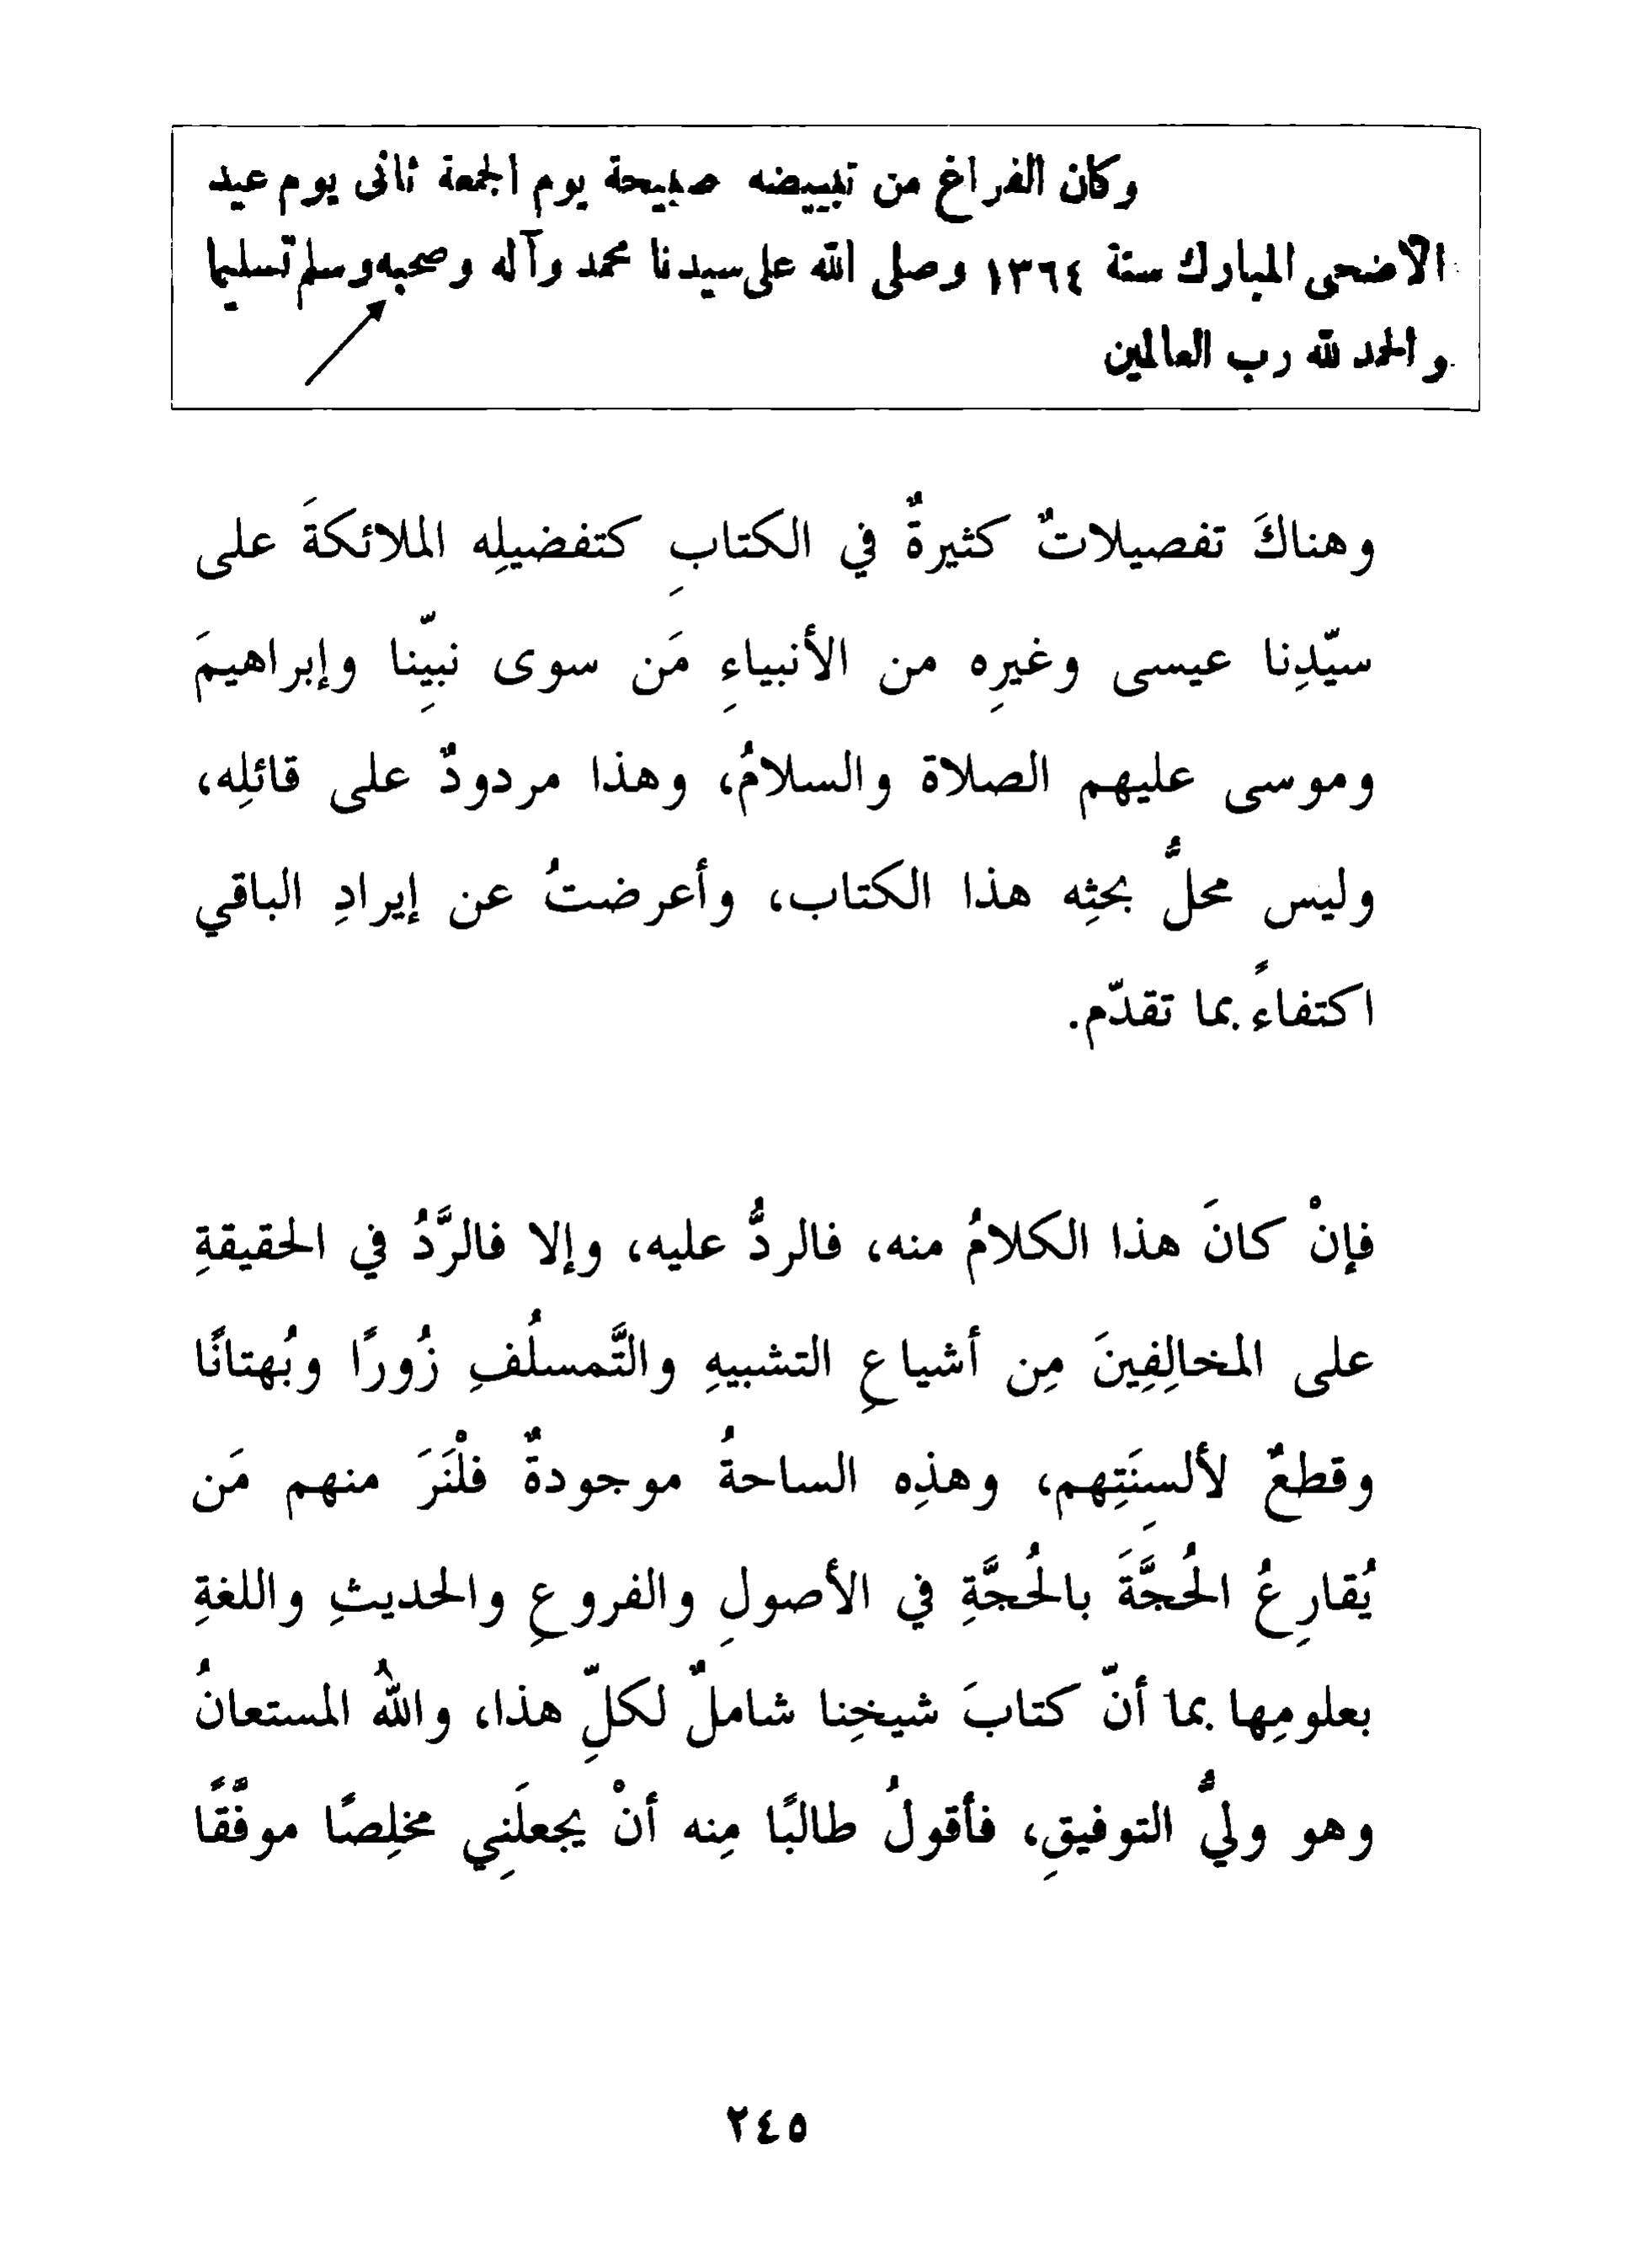 وكان الفراغ من تبييضه صبيحة يوم الجمعة ثانى يوم عيد
الاضحى المبارك سنة ١٣٦٤ وصلى الله على سيدنا محمد وآله وصحبه وسلم تسليما
والحمد لله رب العالمين
وهناكَ تفصيلاتٌ كثيرةٌ في الكتابِ كتفضيلِه الملائكةَ على
سيّدِنا عيسى وغيرِه من الأنبياءِ مَن سوى نبيِّنا وإبراهيمَ
وموسى عليهم الصلاة والسلامُ، وهذا مردودٌ على قائلِه،
وليس محلُّ بحثِه هذا الكتاب، وأعرضتُ عن إيرادِ الباقي
اكتفاءً بما تقدّم.
فإنْ كانَ هذا الكلامُ منه، فالردُّ عليه، وإلا فالرَّدُ في الحقيقةِ
على المخالِفِينَ مِن أشياعِ التشبيهِ والتَّمسلُفِ زُورًا وبُهتانًا
وقطعٌ لألسِنَتِهم، وهذِه الساحةُ موجودةٌ فلْنَرَ منهم مَن
يُقارِعُ الحُجَّةَ بالحُجَّةِ في الأصولِ والفروعِ والحديثِ واللغةِ
بعلومِها بما أنّ كتابَ شيخِنا شاملٌ لكلِّ هذا، واللهُ المستعانُ
وهو وليُّ التوفيقِ، فأقولُ طالبًا مِنه أنْ يجعلَنِي مخلِصًا موفَّقًا
٢٤٥